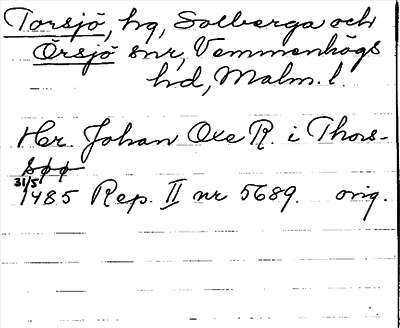 Torsjö, hg, Solberga och
Örsjö snr, Vemmenhögs
hd, Malm. l.
Her Johan Oxe R. i Thors-
søø
31/5
1485 Rep. II nr 5689. orig.